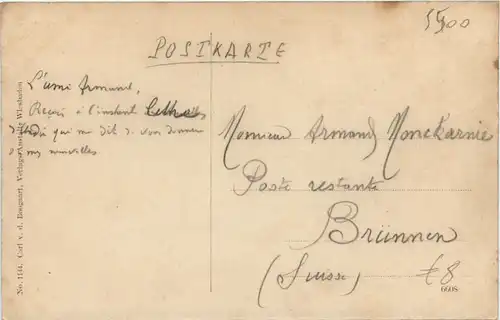 5500
POSTKARTE
L'ami Armand,
Reçois à l'instant lettre
qui me dit de vous donner
mes nouvelles
Monsieur Armand Monckarnie
Poste restante
Brünnen
(Suisse)
£8
6608
No. 1144. Carl v. d. Boogaart, Verlags-Anstalt, Wiesbaden